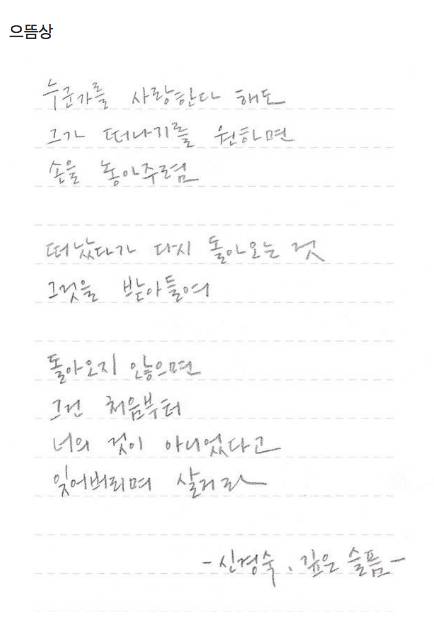 으뜸상
누군가를 사랑한다 해도
그가 떠나기를 원하면
손을 놓아주렴
떠났다가 다시 돌아오는 것
그것을 받아들여
돌아오지 않으면
그건 처음부터
너의 것이 아니었다고
잊어버리며 살거라
-신경숙, 깊은 슬픔-